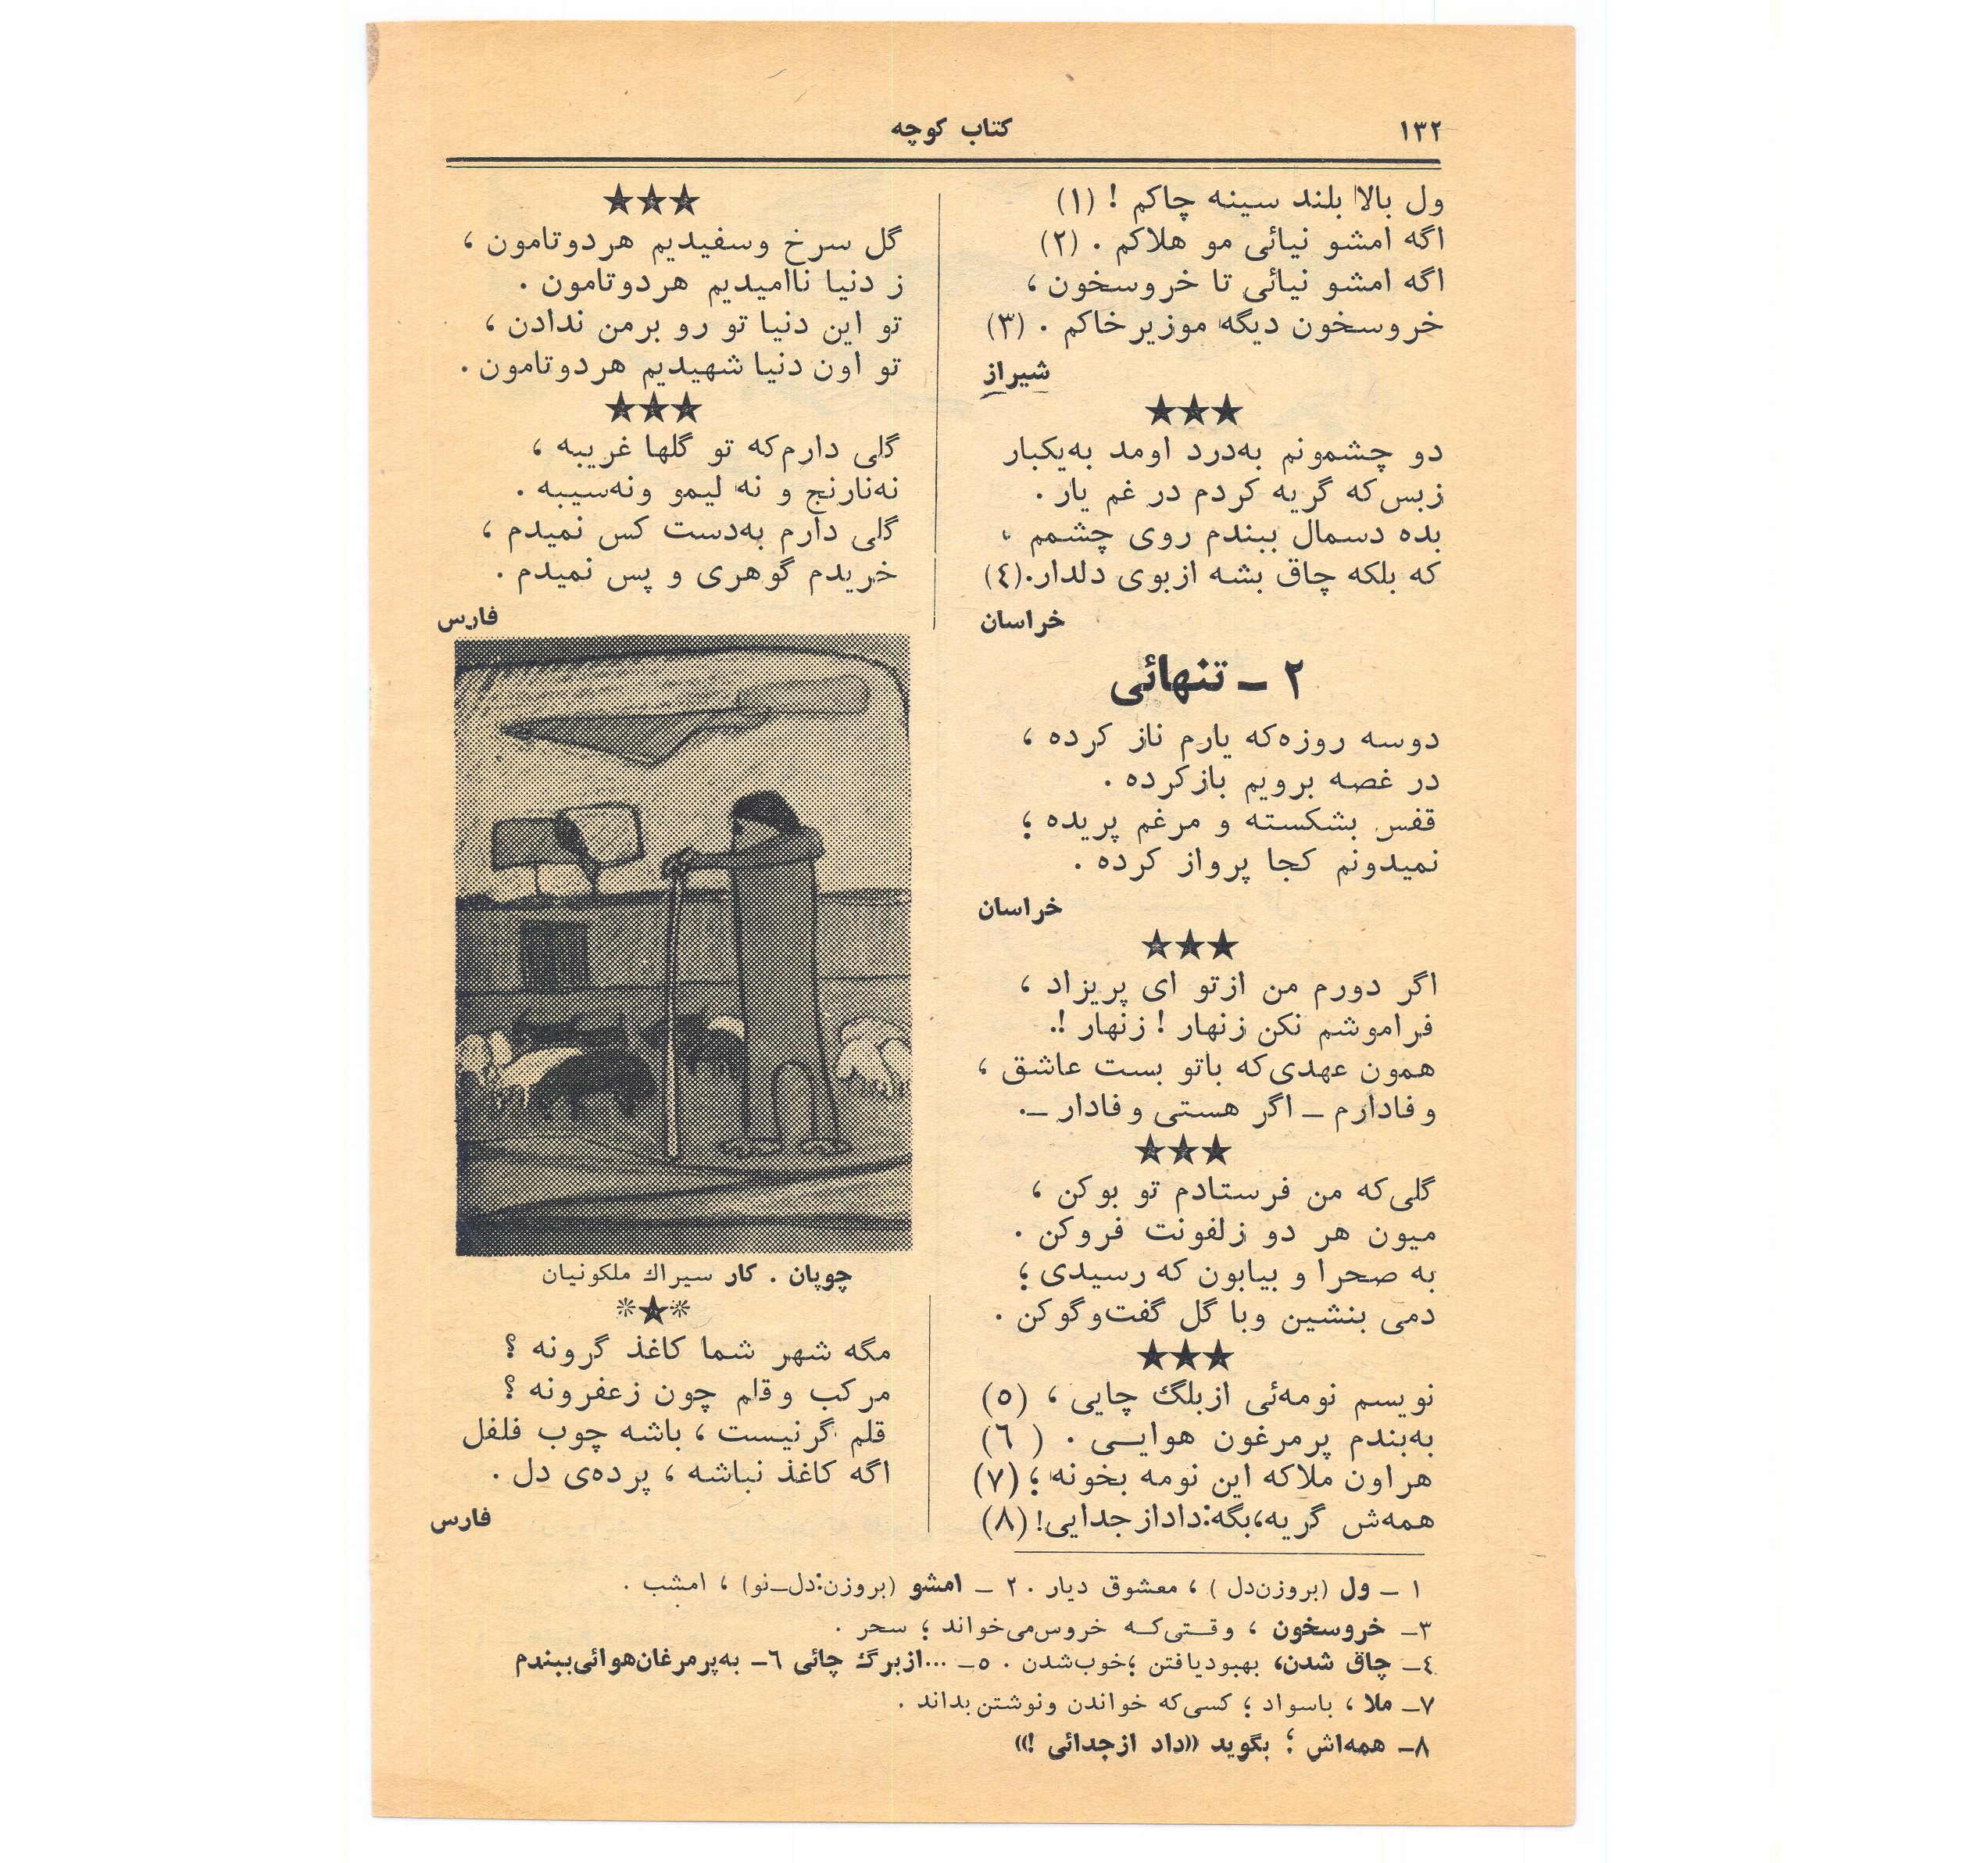 ۱۳۲
کتاب کوچه
ول بالا بلند سینه چاکم ! (۱)
اگه امشو نیائی مو هلاکم . (۲)
اگه امشو نیائی تا خروسخون ،
خروسخون دیگه موزیرخاکم . (۳)
شیراز
★★★
دو چشمونم به‌درد اومد به‌یکبار
زبس‌که گریه کردم در غم یار .
بده دسمال ببندم روی چشمم ،
که بلکه چاق بشه ازبوی دلدار.(٤)
خراسان
۲ ـ تنهائی
دوسه روزه‌که یارم ناز کرده ،
در غصه برویم بازکرده .
قفس بشکسته و مرغم پریده ؛
نمیدونم کجا پرواز کرده .
خراسان
★★★
اگر دورم من ازتو ای پریزاد ،
فراموشم نکن زنهار ! زنهار !.
همون عهدی‌که باتو بست عاشق ،
وفادارم ـ اگر هستی وفادار ـ.
★★★
گلی‌که من فرستادم تو بوکن ،
میون هر دو زلفونت فروکن .
به صحرا و بیابون که رسیدی ؛
دمی بنشین وبا گل گفت‌وگوکن .
★★★
نویسم نومه‌ئی ازبلگ چایی ، (٥)
به‌بندم پرمرغون هوایی . (٦)
هراون ملاکه این نومه بخونه ؛ (۷)
همه‌ش گریه،بگه:دادازجدایی! (۸)
★★★
گل سرخ وسفیدیم هردوتامون ،
ز دنیا ناامیدیم هردوتامون .
تو این دنیا تو رو برمن ندادن ،
تو اون دنیا شهیدیم هردوتامون .
★★★
گلی دارم‌که تو گلها غریبه ،
نه‌نارنج و نه لیمو ونه‌سیبه .
گلی دارم به‌دست کس نمیدم ،
خریدم گوهری و پس نمیدم .
فارس
چوپان . کار سیراك ملکونیان
*★*
مگه شهر شما کاغذ گرونه ؟
مرکب وقلم چون زعفرونه ؟
قلم گرنیست ، باشه چوب فلفل
اگه کاغذ نباشه ، پرده‌ی دل .
فارس
۱ ـ ول (بروزن‌دل ) ، معشوق دیار . ۲ ـ امشو (بروزن:دل‌ـ‌نو) ، امشب .
۳ـ خروسخون ، وقتی‌که خروس‌می‌خواند ؛ سحر .
٤ـ چاق شدن، بهبودیافتن ؛خوب‌شدن . ٥ـ ...ازبرگ چائی ٦ـ به‌پرمرغان‌هوائی‌ببندم
۷ـ ملا ، باسواد ؛ کسی‌که خواندن ونوشتن‌بداند .
۸ـ همه‌اش ؛ بگوید «داد ازجدائی !»